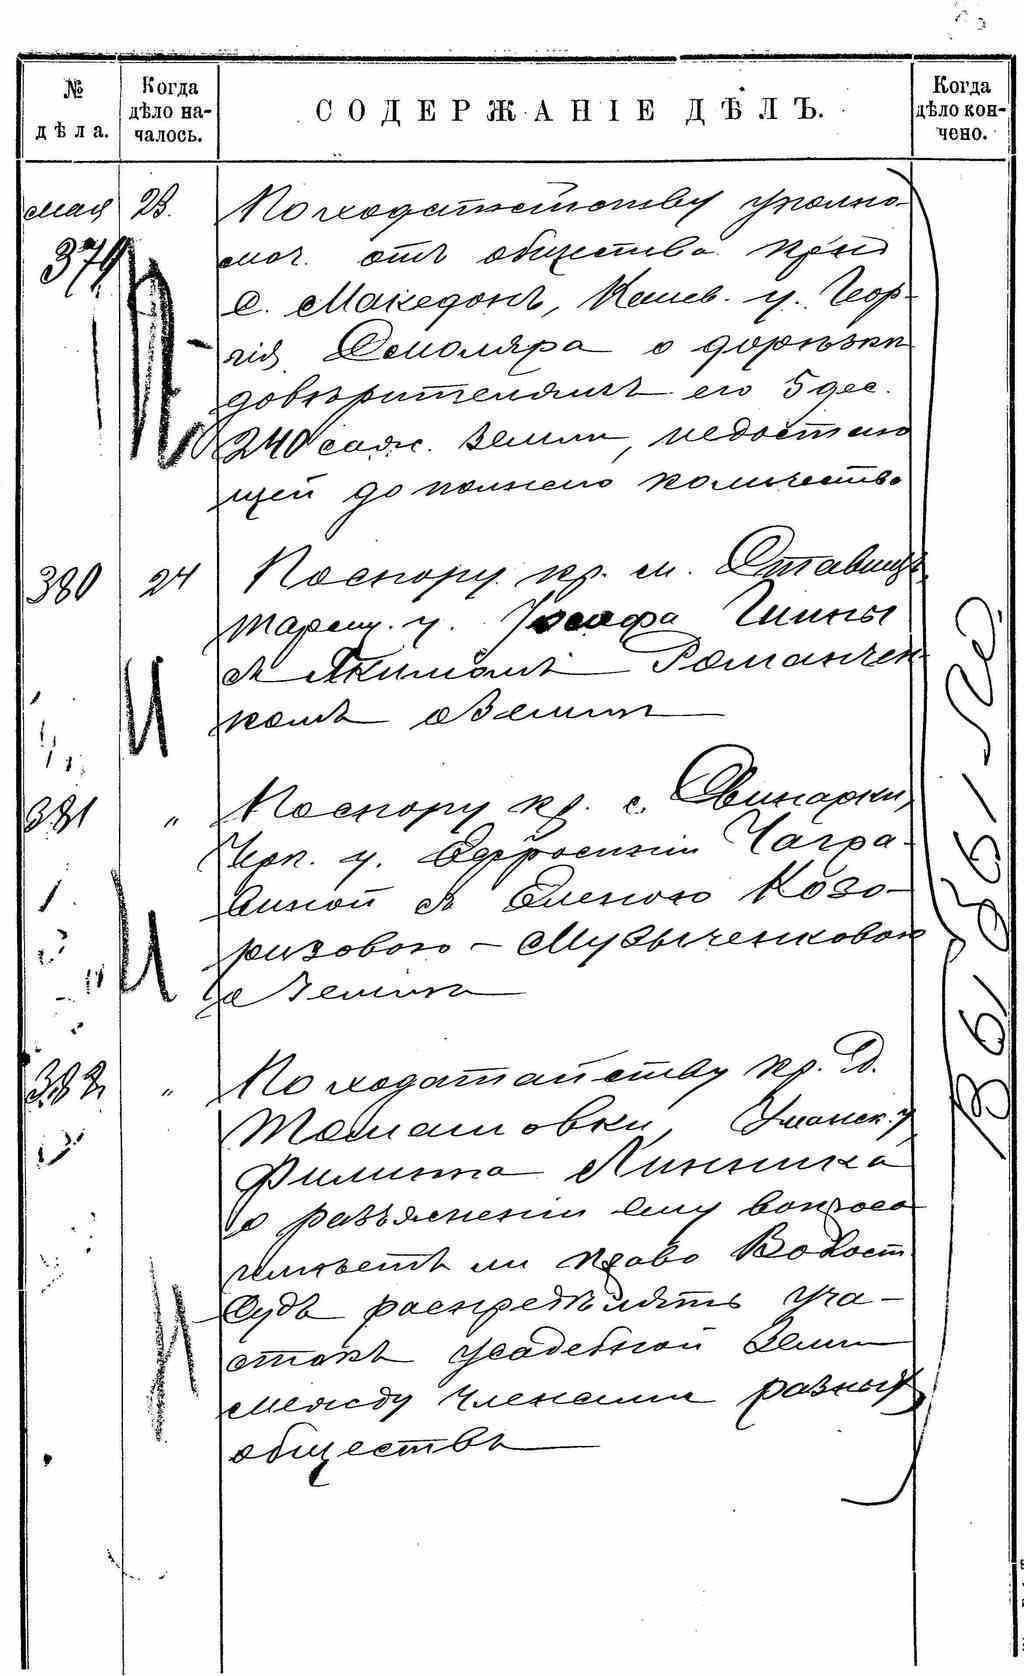 № дѣла.
Когда дѣло началось.
СОДЕРЖАНІЕ ДѢЛЪ.
Когда дѣло кончено.
мая 23.
379
По ходатайству уполно-
моч. отъ общества кр-нъ
с. Македонъ, Канев. у. Геор-
гія Смоляра о дорѣзки
довѣрителямъ его 5 дес.
240 саж. земли, недостаю
щей до полнаго количества
380 24 По спору кр. м. Ставищъ,
Таращ. у. Іосифа Гинны
съ Якимомъ Романчен-
комъ о земли
381 " По спору кр. с. Свинарки,
Черк. у. Ефросиніи Чагра-
виной съ Еленою Козо-
ризовою - Музыченковою
о земли
382 " По ходатайству кр. д.
Томашовки, Уманск. у,
Филиппа Линника
о разъясненіи ему вопроса
имѣетъ ли право Волост
Судъ распредѣлять уча-
стокъ усадебной земли
между членами разныхъ
обществъ
И
И
И